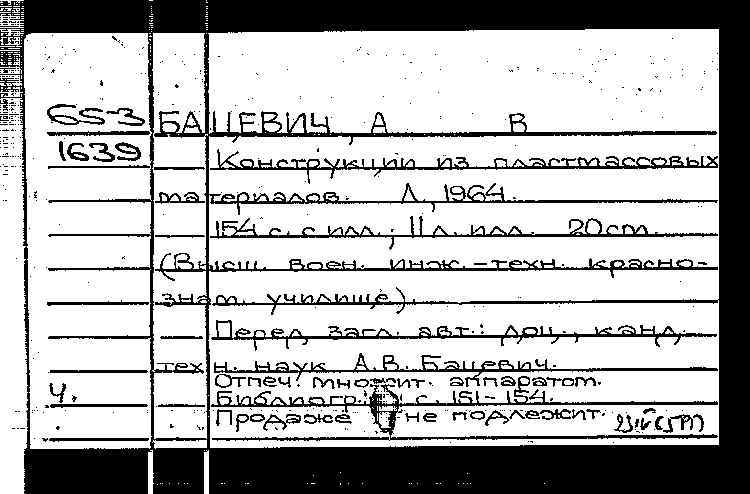 65-3 БАЦЕВИЧ, А В
1639 Конструкции из пластмассовых
материалов. Л., 1964.
154 с. с илл.; 11 л. илл. 20 cm.
(Высш. воен. инж.-техн. красно-
знам. училище).
Перед загл. авт.: доц., канд.
техн. наук А.В. Бацевич.
Отпеч. множит. аппаратом.
Ч. Библиогр.: с. 151-154.
Продаже не подлежит.